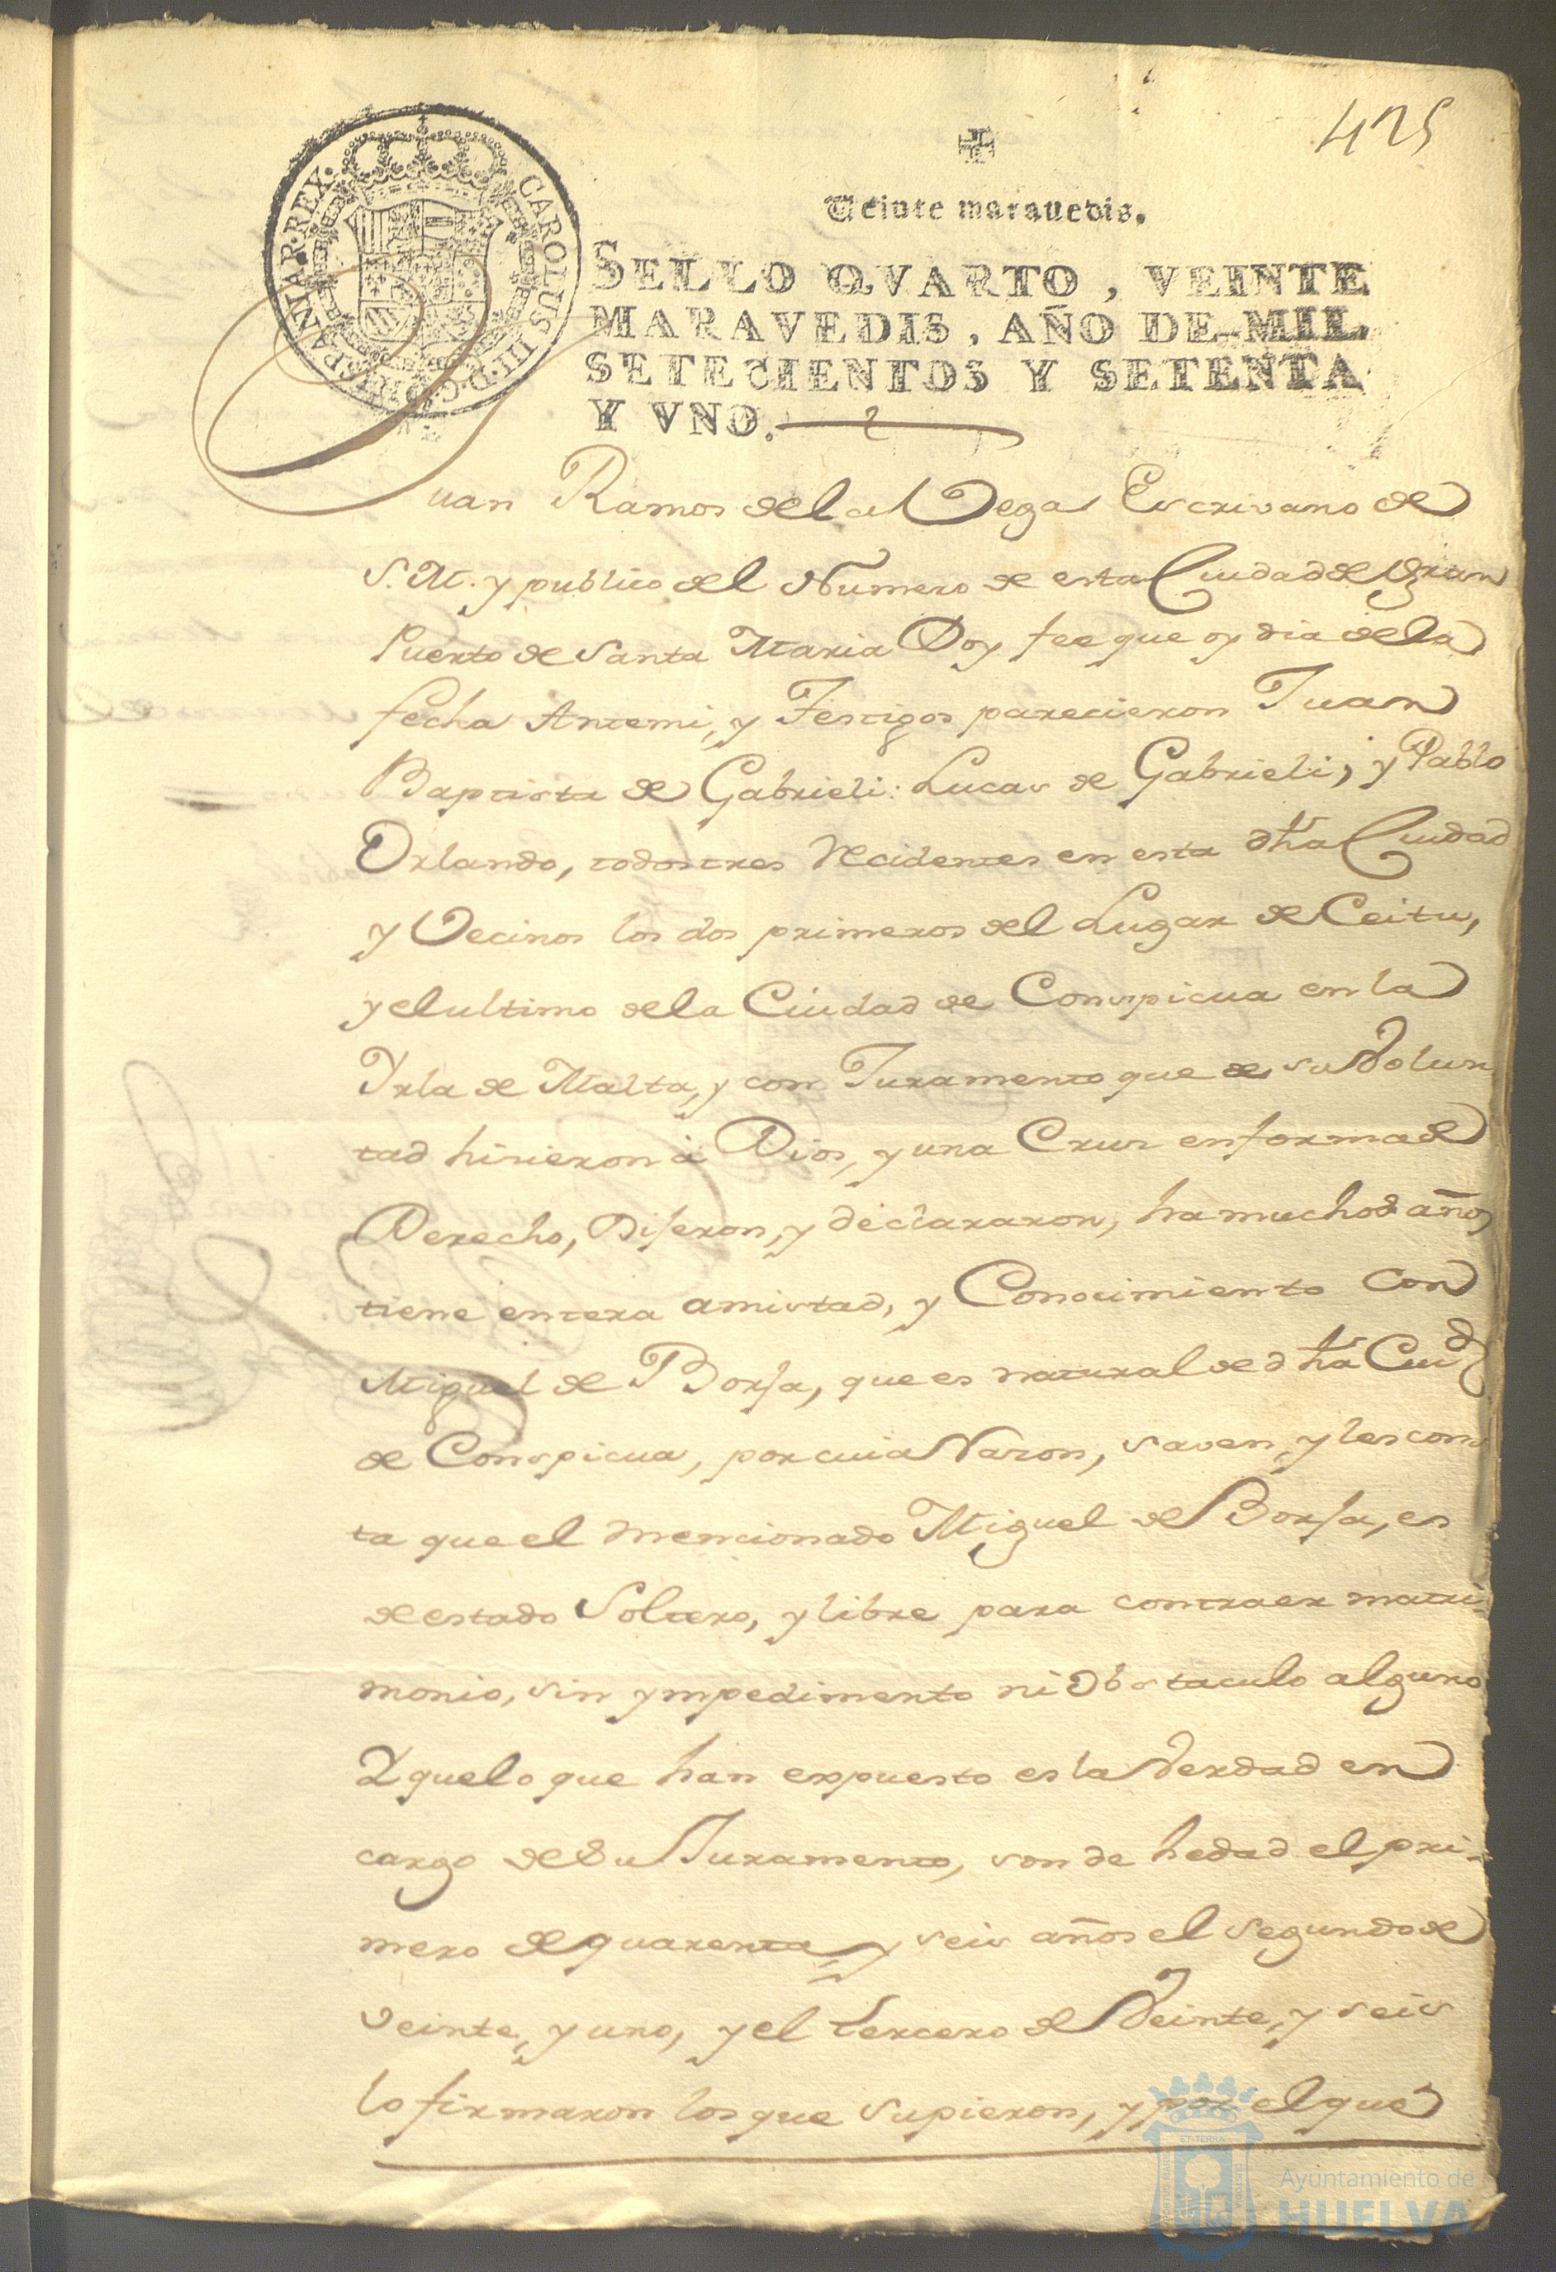 425
Veinte maravedis.
CAROLUS III. D. G. HISPANIAR. REX.
SELLO QVARTO, VEINTE
MARAVEDIS, AÑO DE MIL
SETECIENTOS Y SETENTA
Y VNO.
Juan Ramos de la Vega Escrivano de
S. M. y publico del Numero de esta Ciudad de Gran
Puerto de Santa Maria Doy fee que oy dia de la
fecha Antemi, y Testigos parecieron Juan
Baptista de Gabrieli: Lucas de Gabrieli, y Pablo
Orlando, todos tres Recidentes en esta dha Ciudad
y Vecinos los dos primeros del Lugar de Ceitu,
y el ultimo de la Ciudad de Conspicua en la
Ysla de Malta, y con Juramento que de su Volun
tad hisieron á Dios, y una Crus en forma de
Derecho, Dijeron, y declararon, ha muchos años
tiene entera amistad, y Conocimiento con
Miguel de Borja, que es natural de dha Ciud
de Conspicua, por cuia Rason, saven, y les cons
ta que el mencionado Miguel de Borja, es
de estado Soltero, y libre para contraer matri-
monio, sin ympedimento ni Obstaculo alguno
Y que lo que han expuesto es la Verdad en
cargo de Su Juramento, son de hedad el pri-
mero de quarenta y seis años el segundo de
veinte, y uno, y el tercero de Veinte, y seis
lo firmaron los que supieron, y por el que
Ayuntamiento de
HUELVA